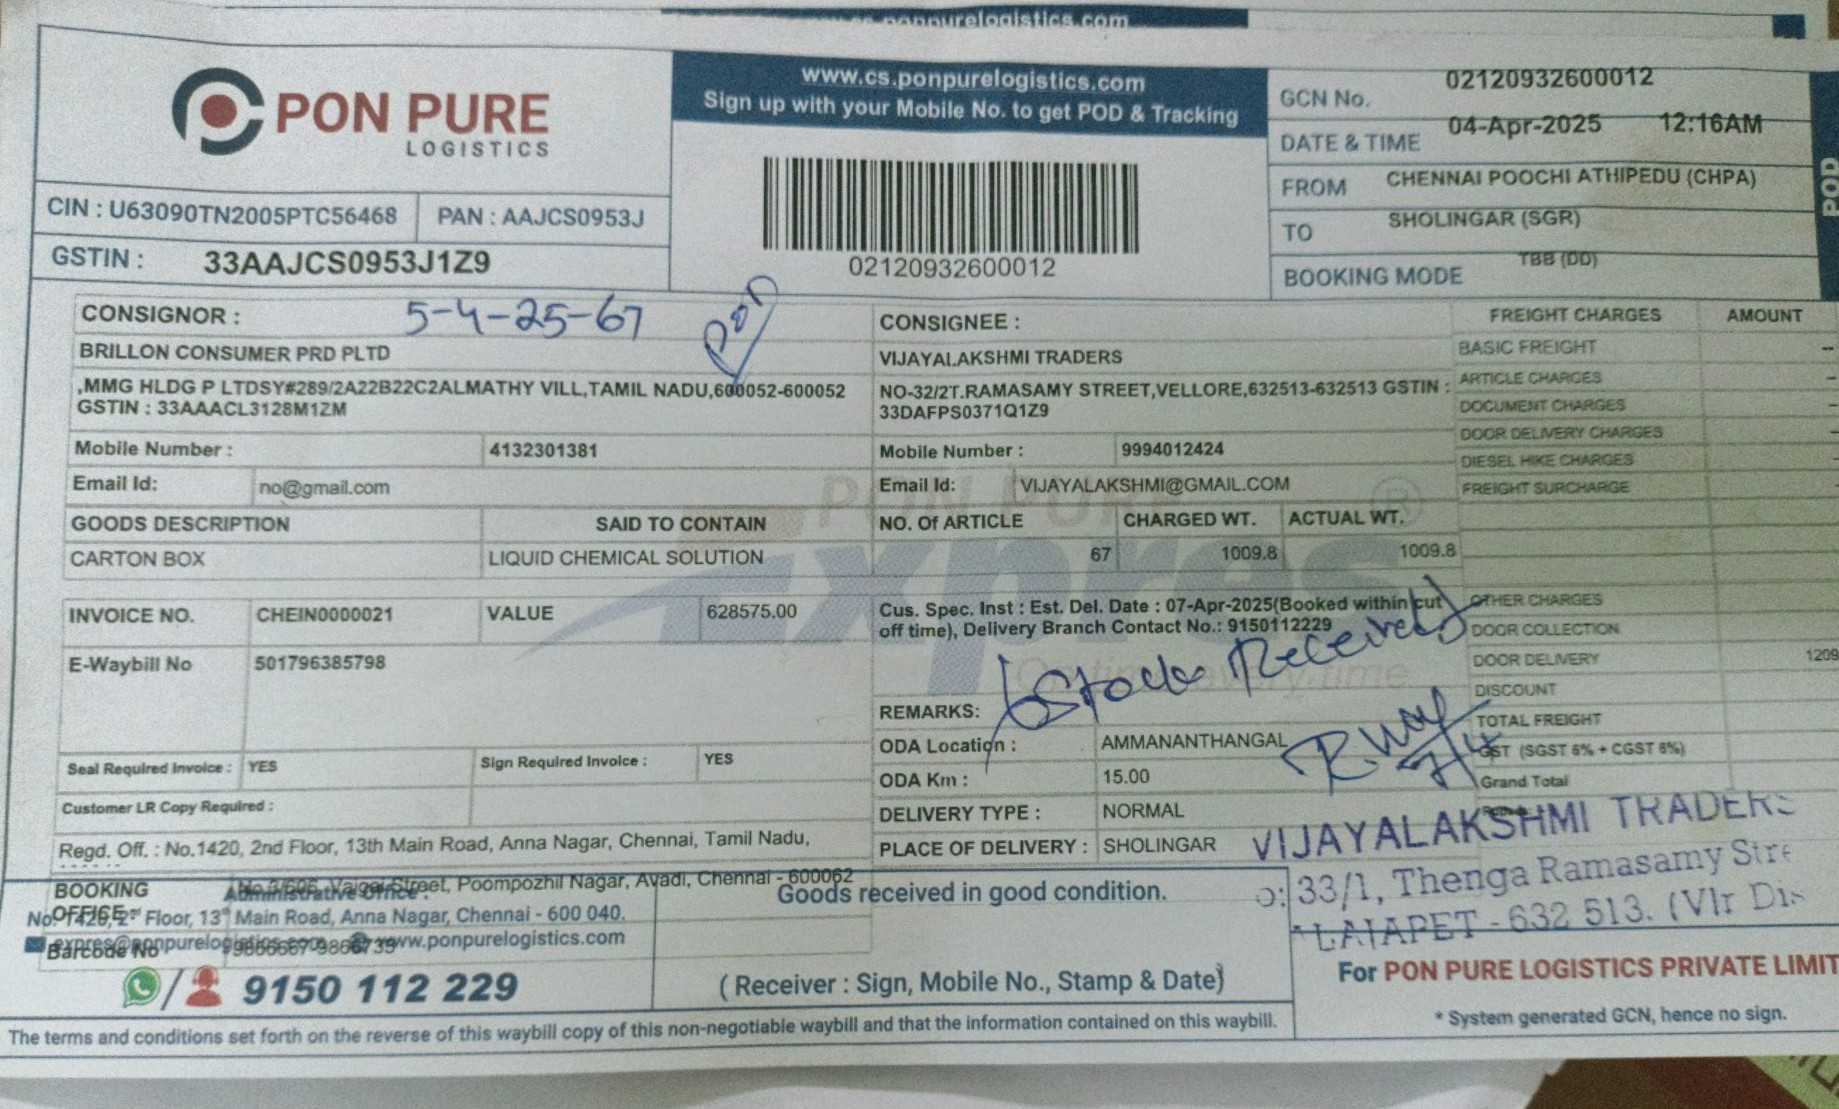 cs.ponpurelogistics.com
PON PURE
LOGISTICS
CIN : U63090TN2005PTC56468
PAN : AAJCS0953J
GSTIN : 33AAJCS0953J1Z9
www.cs.ponpurelogistics.com
Sign up with your Mobile No. to get POD & Tracking
02120932600012
GCN No. 02120932600012
DATE & TIME 04-Apr-2025 12:16AM
FROM CHENNAI POOCHI ATHIPEDU (CHPA)
TO SHOLINGAR (SGR)
BOOKING MODE TBB (DD)
POD
CONSIGNOR : 5-4-25-67
POD
BRILLON CONSUMER PRD PLTD
,MMG HLDG P LTDSY#289/2A22B22C2ALMATHY VILL,TAMIL NADU,600052-600052
GSTIN : 33AAACL3128M1ZM
Mobile Number : 4132301381
Email Id: no@gmail.com
GOODS DESCRIPTION SAID TO CONTAIN
CARTON BOX LIQUID CHEMICAL SOLUTION
CONSIGNEE :
VIJAYALAKSHMI TRADERS
NO-32/2T.RAMASAMY STREET,VELLORE,632513-632513 GSTIN :
33DAFPS0371Q1Z9
Mobile Number : 9994012424
Email Id: VIJAYALAKSHMI@GMAIL.COM
NO. Of ARTICLE CHARGED WT. ACTUAL WT.
67 1009.8 1009.8
PON PURE
Expres
FREIGHT CHARGES AMOUNT
BASIC FREIGHT --
ARTICLE CHARGES
DOCUMENT CHARGES
DOOR DELIVERY CHARGES
DIESEL HIKE CHARGES
FREIGHT SURCHARGE
OTHER CHARGES
DOOR COLLECTION
DOOR DELIVERY 1209
DISCOUNT
TOTAL FREIGHT
GST (SGST 6% + CGST 6%)
Grand Total
INVOICE NO. CHEIN0000021 VALUE 628575.00
E-Waybill No 501796385798
Seal Required Invoice : YES Sign Required Invoice : YES
Customer LR Copy Required :
Regd. Off. : No.1420, 2nd Floor, 13th Main Road, Anna Nagar, Chennai, Tamil Nadu,
Cus. Spec. Inst : Est. Del. Date : 07-Apr-2025(Booked within cut
off time), Delivery Branch Contact No.: 9150112229
Stock Received
REMARKS:
ODA Location : AMMANANTHANGAL
ODA Km : 15.00
DELIVERY TYPE : NORMAL
PLACE OF DELIVERY : SHOLINGAR
7/4
VIJAYALAKSHMI TRADERS
33/1, Thenga Ramasamy Stre
LAJAPET - 632 513. (Vlr Dis
BOOKING OFFICE
No.3/606, Vaigai Street, Poompozhil Nagar, Avadi, Chennai - 600062
Administrative Office :
No. 1420, 2nd Floor, 13th Main Road, Anna Nagar, Chennai - 600 040.
expres@ponpurelogistics.com www.ponpurelogistics.com
Barcode No 9866667-9866733
9150 112 229
Goods received in good condition.
( Receiver : Sign, Mobile No., Stamp & Date)
For PON PURE LOGISTICS PRIVATE LIMIT
* System generated GCN, hence no sign.
The terms and conditions set forth on the reverse of this waybill copy of this non-negotiable waybill and that the information contained on this waybill.